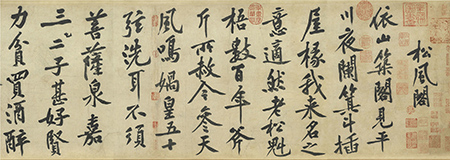 松風閣
依山築閣見平
川夜闌箕斗插
屋椽我來名之
意適然老松魁
梧數百年斧
斤所赦今參天
風鳴媧皇五十
弦洗耳不須
菩薩泉嘉
三二子甚好賢
力貧買酒醉